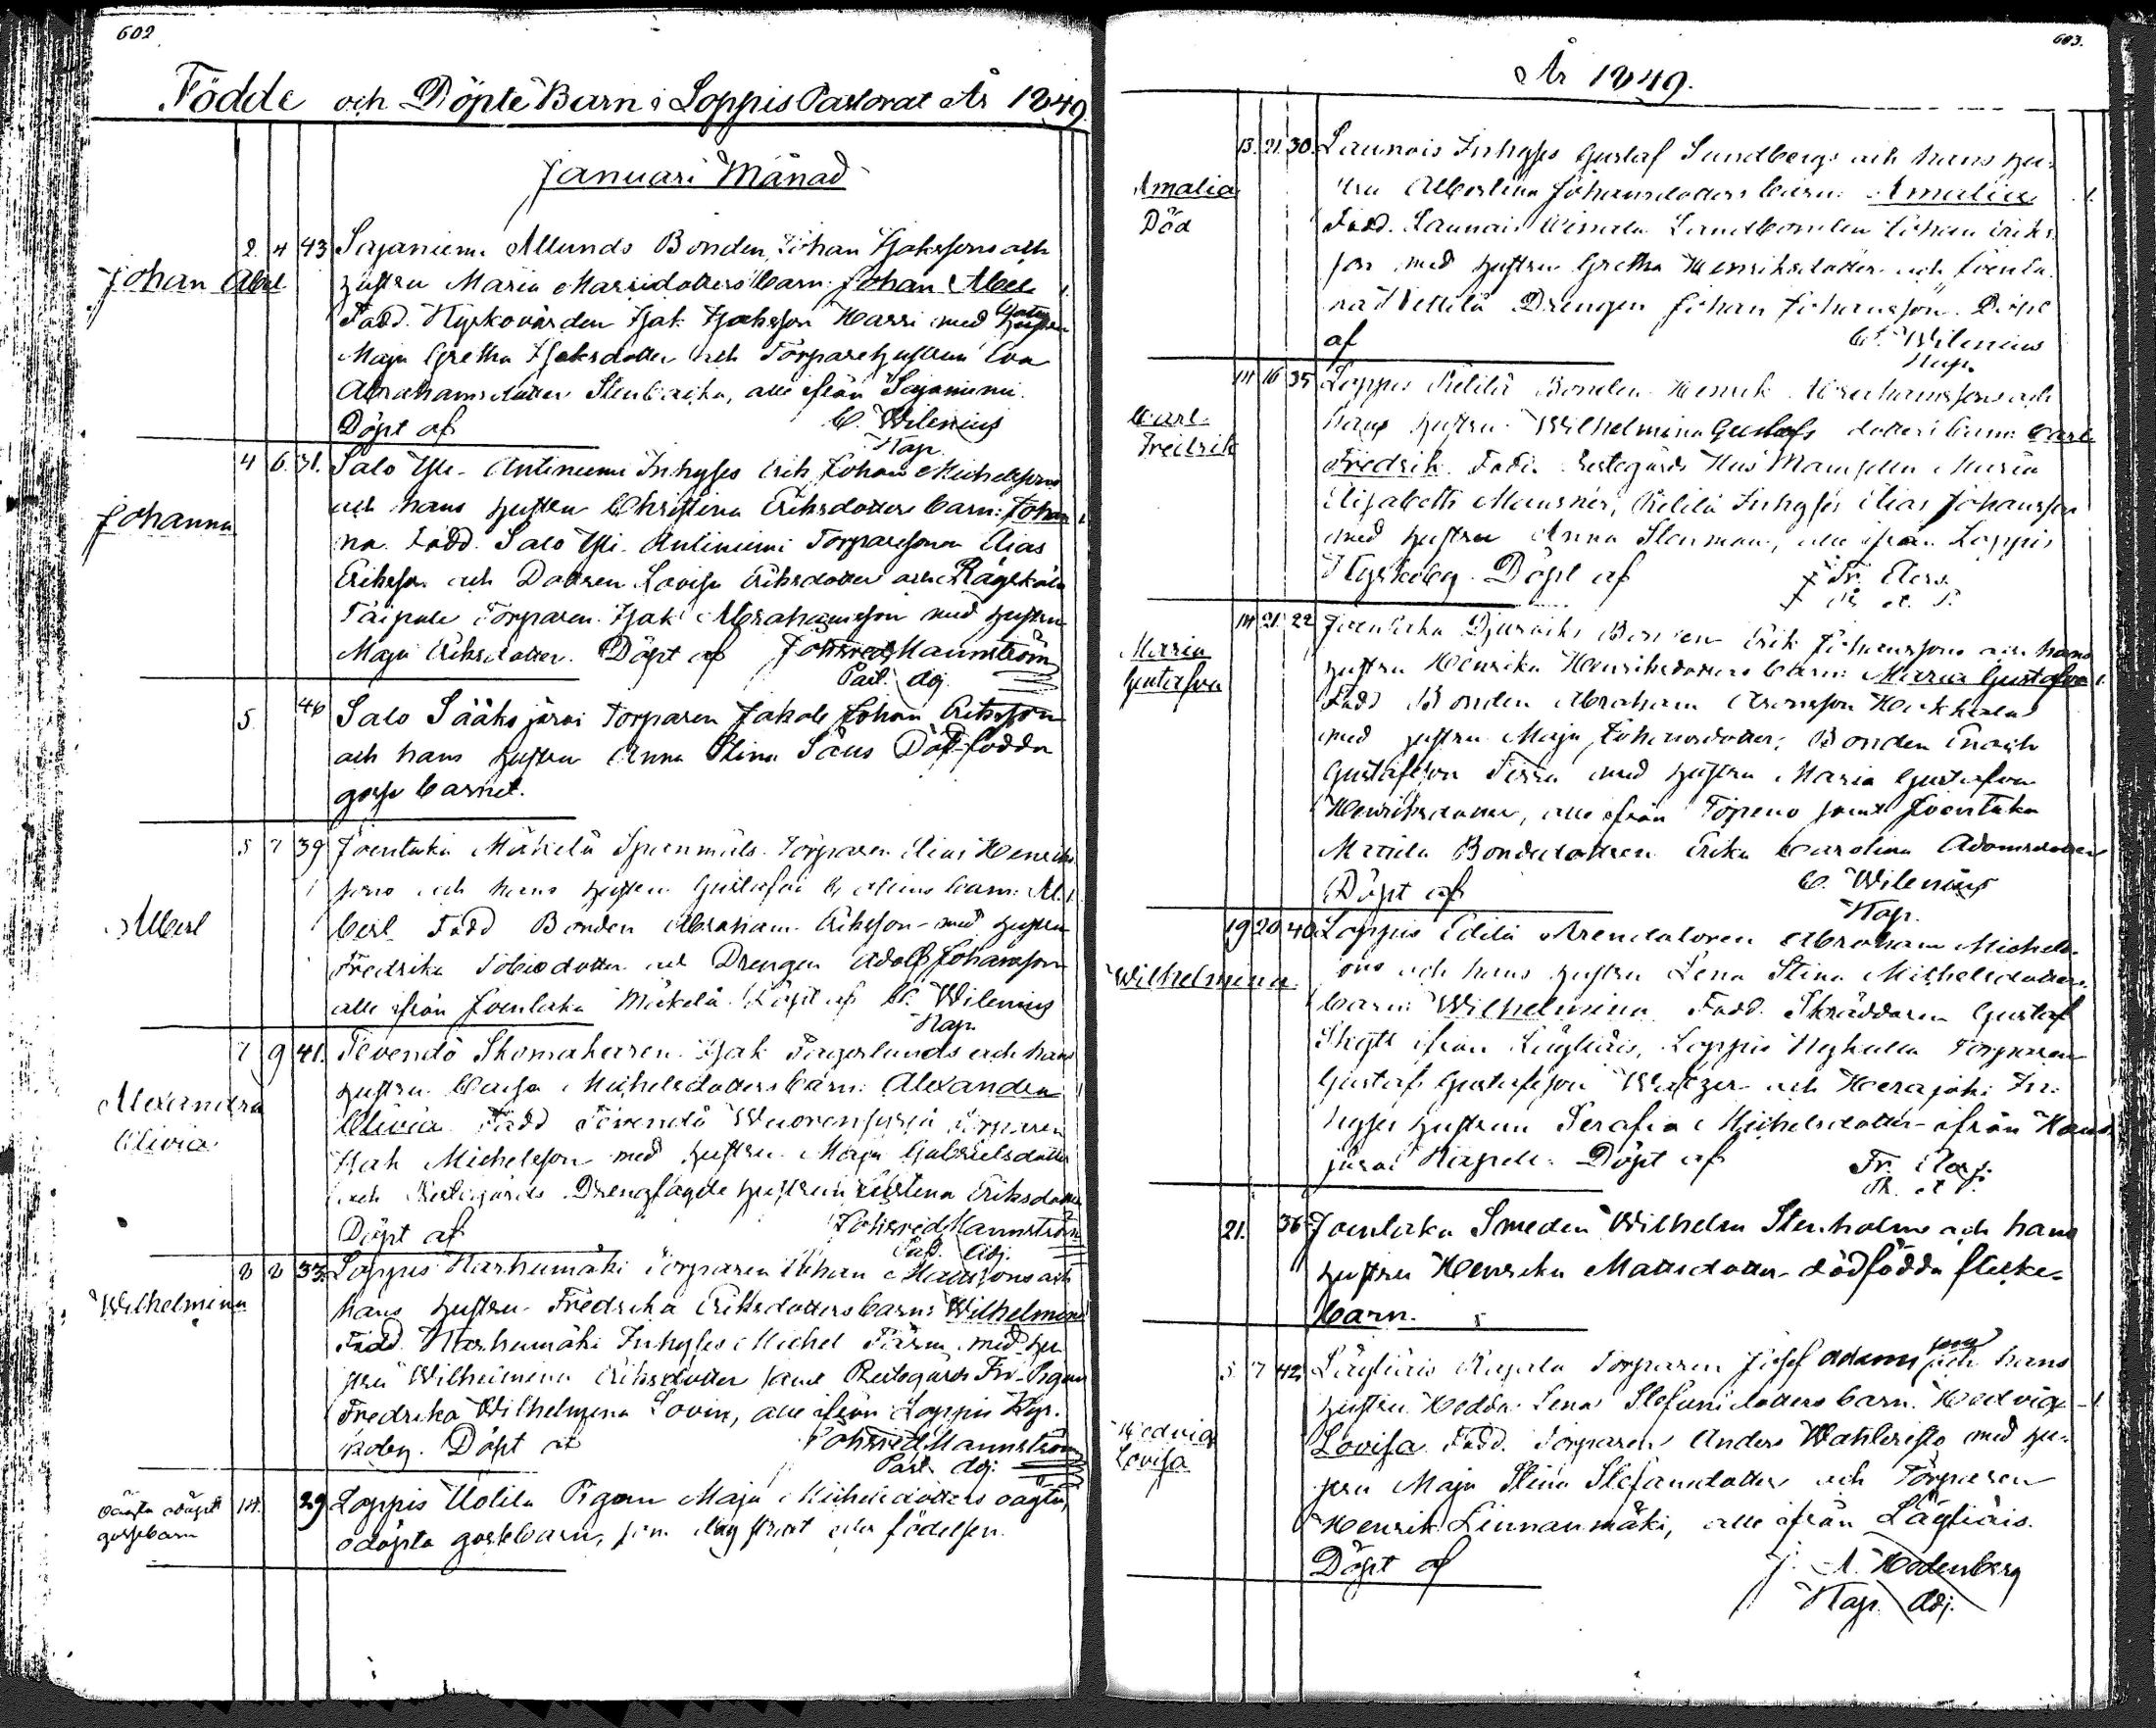 602
Födde och Döpte Barn i Loppis Pastorat År 1849.
Januari Månad
Johan Abel
2. 4 43 Sajaniemi Allunds Bonden, Johan Isakssons och
hustru Maria Mariedotters barn: Johan Abel
Fadd. Kyrkovärden Isak Isaksson Harri med hustru
Maja Gretha Isaksdotter och Torparehustrun Eva
Abrahamsdotter Stenbacka, alle ifrån Sajaniemi.
Döpt af C. Wilenius
Kap.
Johanna
4 6 31. Salo Yli-Antiniemi Inhyses Erik Johan Michelssons
och hans hustru Christina Eriksdotters barn: Johan
na. Fadd. Salo Yli-Antiniemi Torparesonen Elias
Eriksson och Dottren Lovisa Eriksdotter och
Taipale Torparen Isak Abrahamsson med hustru
Maja Eriksdotter. Döpt af Mannström
Past. Adj.
5. 40 Salo Sääksjärvi Torparen Jakob Johan Eriksson
och hans hustru Anna Stina Däd födda
gosse barnet.
Albert
5 7 39 Joentaka Mäkelä Spanmåls Torparen Elias Henriks
sons och hans hustru Gustafva barn: Al
bert. Fadd Bonden Abraham Eriksson med hustru
Fredrika Tobiedotter och Drengen Adolf Johansson
alle ifrån Joentaka Mäkelä. Döpt af C. Wilenius
Kap.
Alexandra
Olivia
7 9 41. Tevendö Skomakaren Isak Fagerlunds och hans
hustru Caisa Michelsdotters barn: Alexandra
Olivia Fadd Tevendö Torparen
Isak Michelsson med hustru Maja Gabrielsdotter
och Drenglagde hustrun Eriksdotter
Döpt af Mannström
Past. Adj.
Wilhelmina
8 8 33. Loppis Karhumäki Torparen Johan Mattssons och
hans hustru Fredrika Eriksdotters barn: Wilhelmina
Fadd. Karhumäki Inhyses Michel Färm med hu
stru Wilhelmina Eriksdotter samt Pigan
Fredrika Wilhelmina Lovin, alle ifrån Loppis Kyr.
koby. Döpt af Mannström
Past. Adj.
oägta odöpte
gossebarn
14. 29 Loppis Uotila Pigan Maja Michelsdotters oägta,
odöpta gossebarn, som dog strax efter födelsen.
603.
År 1849.
Amalia
Död
13. 21. 30. Launois Inhyses Gustaf Sundbergs och hans hu-
stru Albertina Johansdotters barn: Amalia
Fadd. Launois Landbonden Johan Eriks
son med hustru Gretha Henriksdotter och Joenta
ka Wettilä Drengen Johan Johansson. Döpt
af C. Wilenius
Kap.
Carl
Fredrik
14 16 35 Loppis Pietilä Bonden Henrik Abrahamssons och
hans hustru Wilhelmina Gustafs dotters barn: Carl
Fredrik. Fadd. Prestegårds Hus Mamsellen Maria
Elisabeth Meusner, Pietilä Inhyses Elias Johansson
med hustru Anna Stenman, alle ifrån Loppis
Kyrkoby. Döpt af Fr. Elers
Maria
Gustafva
14 21. 22 Joentaka Bonden Erik Johanssons och hans
hustru Henrika Henriksdotters barn: Maria Gustafva
Fadd Bonden Abraham Aronsson Heikkala
med hustru Maja Johansdotter; Bonden Enoch
Gustafsson med hustru Maria Gustafva
Henriksdotter, alle ifrån Topeno samt Joentaka
Mattila Bondedottren Erika Carolina Adamsdotter
Döpt af C. Wilenius
Kap.
Wilhelmina
19 20 40. Loppis Edilä Arendatoren Abraham Michels-
sons och hans hustru Lena Stina Michelsdotters
barn: Wilhelmina Fadd. Skräddaren Gustaf
Skytt ifrån Lägliäis, Loppis Torparen
Gustaf Gustafsson Watzer och Herajoki In-
hyses hustrun Serafia Michelsdotter ifrån Haus
järvi Kapell. Döpt af Fr. Elers
21. 36 Joentaka Smeden Wilhelm Stenholms och hans
hustru Henrika Mattsdotter dödfödda flicke-
barn.
Hedvig
Lovisa
5. 7 42. Lägliäis Rajala Torparen Josef Adamssons och hans
hustru Hedda Lena Stefansdotters barn. Hedvig
Lovisa. Fadd. Torparen Anders Wahleristo med hu-
stru Maja Stina Stefansdotter och Torparen
Henrik Linnanmäki, alle ifrån Lägliäis.
Döpt af J. A. Hedenberg
Kap. Adj.